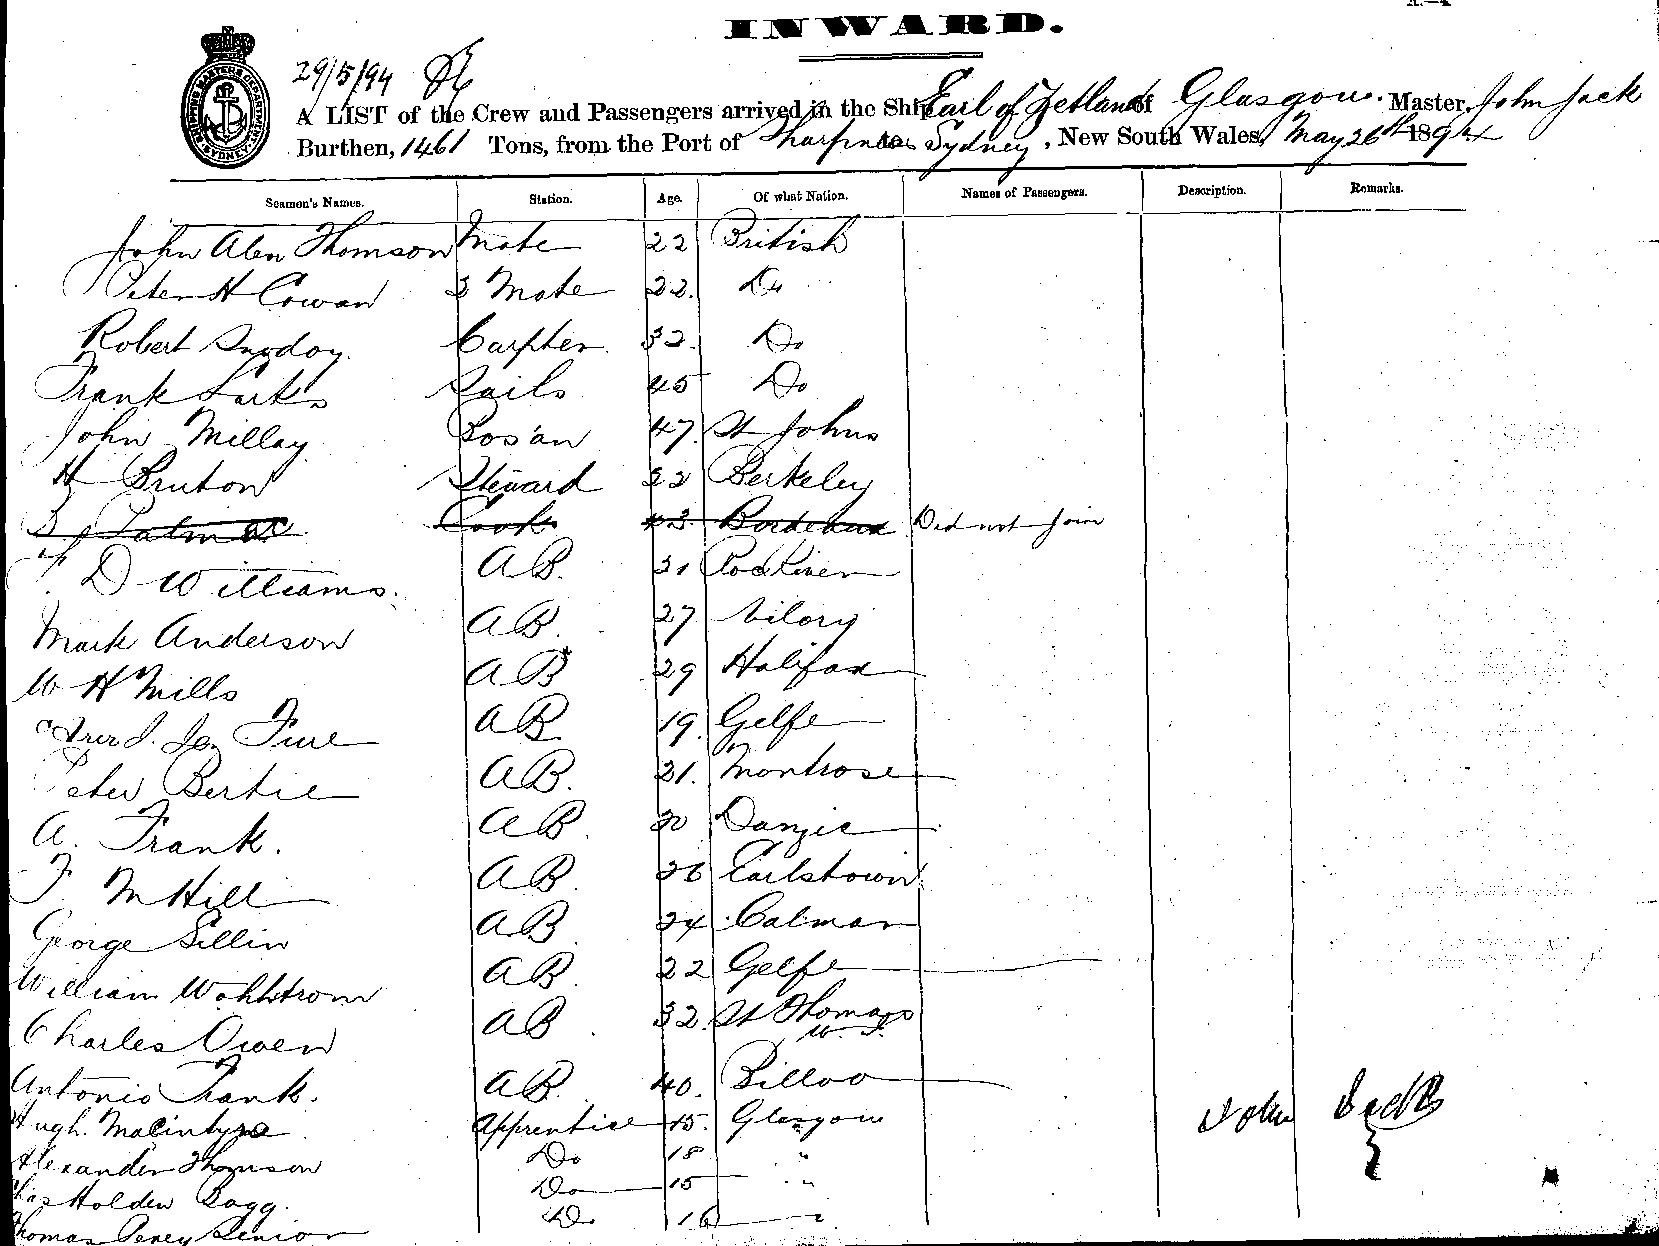 INWARD.
29/5/94
A LIST of the Crew and Passengers arrived in the Ship Earl of Zetland of Glasgow. Master, John Jack
Burthen, 1461 Tons, from the Port of Sharpness to Sydney, New South Wales, May 26th 1894
Seamen's Names. Station. Age. Of what Nation. Names of Passengers. Description. Remarks.
John Alen Thomson Mate 22 British
Peter H Cowan 2 Mate 22. Do
Robert Carpter. 32. Do
Frank Sails 45 Do
John Millay Bos'an 47. St Johns
H Bruton Steward 22 Berkeley
Cook 43 Bordeaux Did not Join
D Williams. AB. 31
Mark Anderson AB. 27
W H Mills AB 29 Halifax
AB 19. Gelfe
Peter Bertie AB. 21. Montrose
A. Frank. AB. 30 Danzic
F McHill AB. 26 Earlstown
George Sillin AB. 24 Calmar
William Wohlstrom AB. 22 Gelfe
Charles Owen AB. 32. St Thomas W. I.
Antonio Frank. AB. 40. Billoo
Hugh. Macintyre Apprentice 15. Glasgow
Alexander Thomson Do 18 "
Chas Holden Bagg. Do 15 "
Thomas Percy Senior Do. 16 "
John Jack